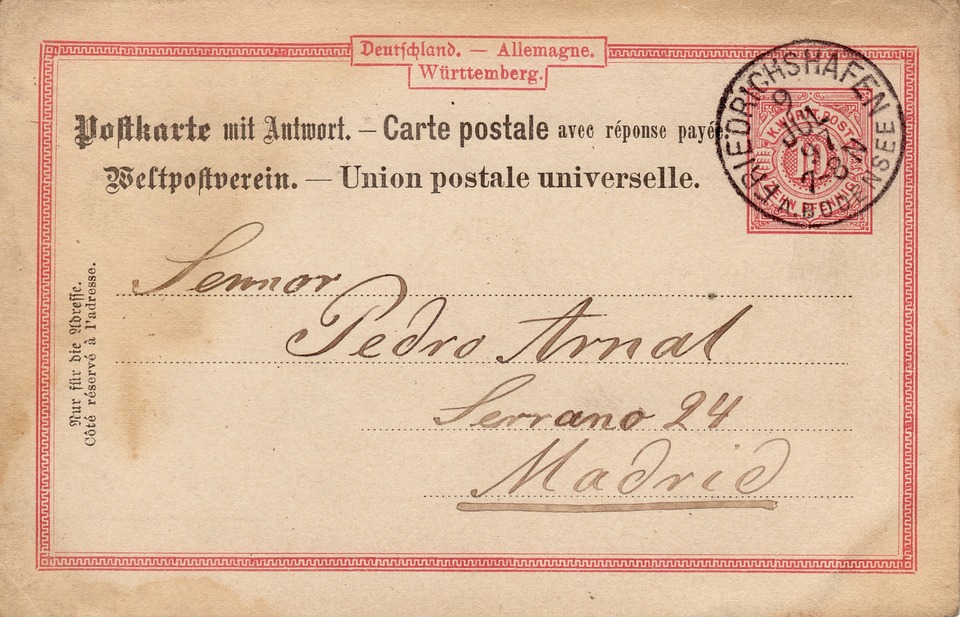 Deutschland. — Allemagne.
Württemberg.
Postkarte mit Antwort. — Carte postale avec réponse payé
Weltpostverein. — Union postale universelle.
FRIEDRICHSHAFEN
9
JUL
A. BODENSEE
K. WÜRT. POST
ZEHN PFENNIG
Nur für die Adresse.
Côté réservé à l'adresse.
Sennor
Pedro Arnal
Serrano 24
Madrid